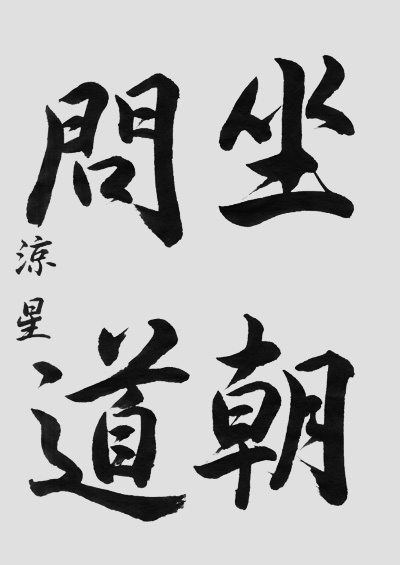 坐朝
問道
涼星